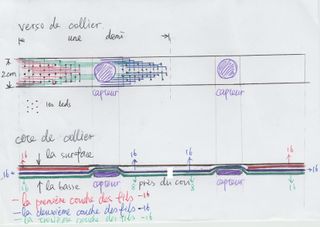 verso de collier
une demi
2cm
capteur
capteur
les leds
côte de collier
la surface
16
16
16
16
16
16
la basse
capteur
près du cou
8
8
capteur
- la première couche des fils - 16
- la deuxième couche des fils - 16
- la troisième couche des fils - 16